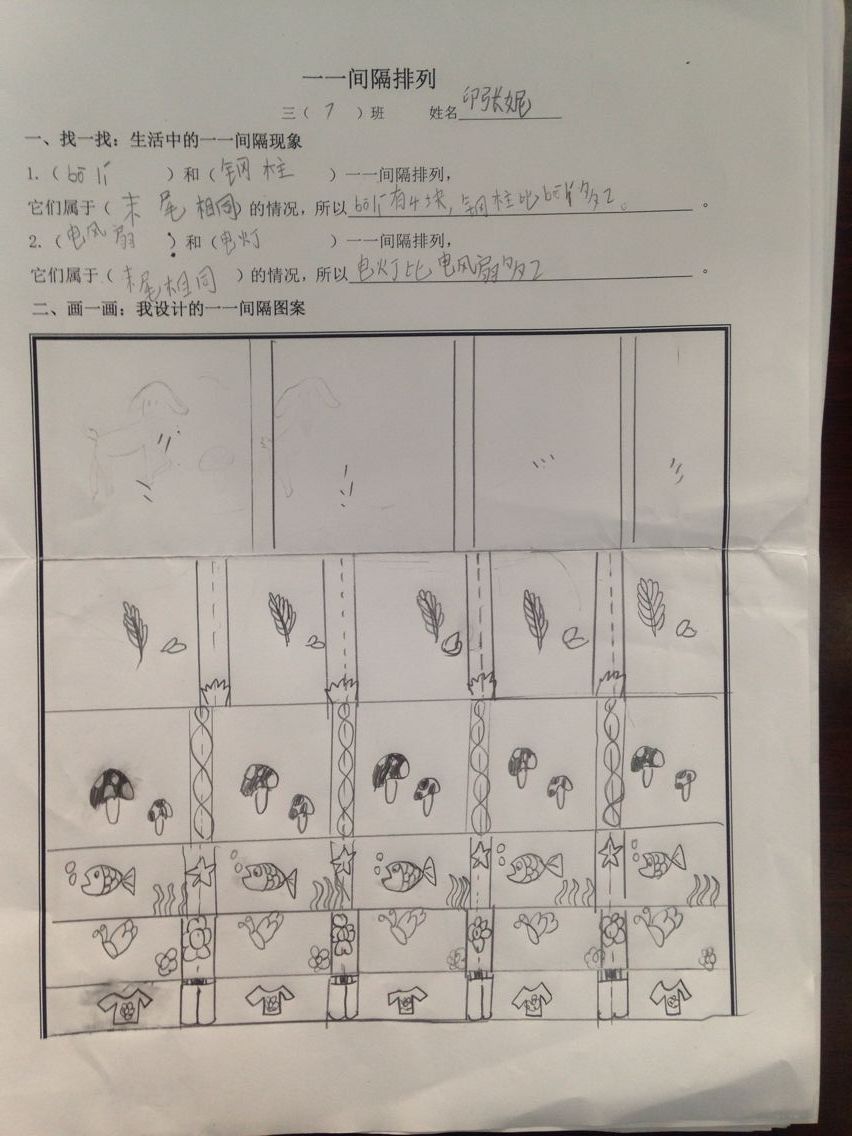 一一间隔排列
三（ 7 ）班 姓名 印张妮
一、找一找：生活中的一一间隔现象
1.（ ）和（ 钢柱 ）一一间隔排列，
它们属于（ 末尾相同）的情况，所以 有4块，钢柱比 多1。 。
2.（电风扇 ）和（电灯 ）一一间隔排列，
它们属于（ 末尾相同 ）的情况，所以 电灯比电风扇多1 。
二、画一画：我设计的一一间隔图案